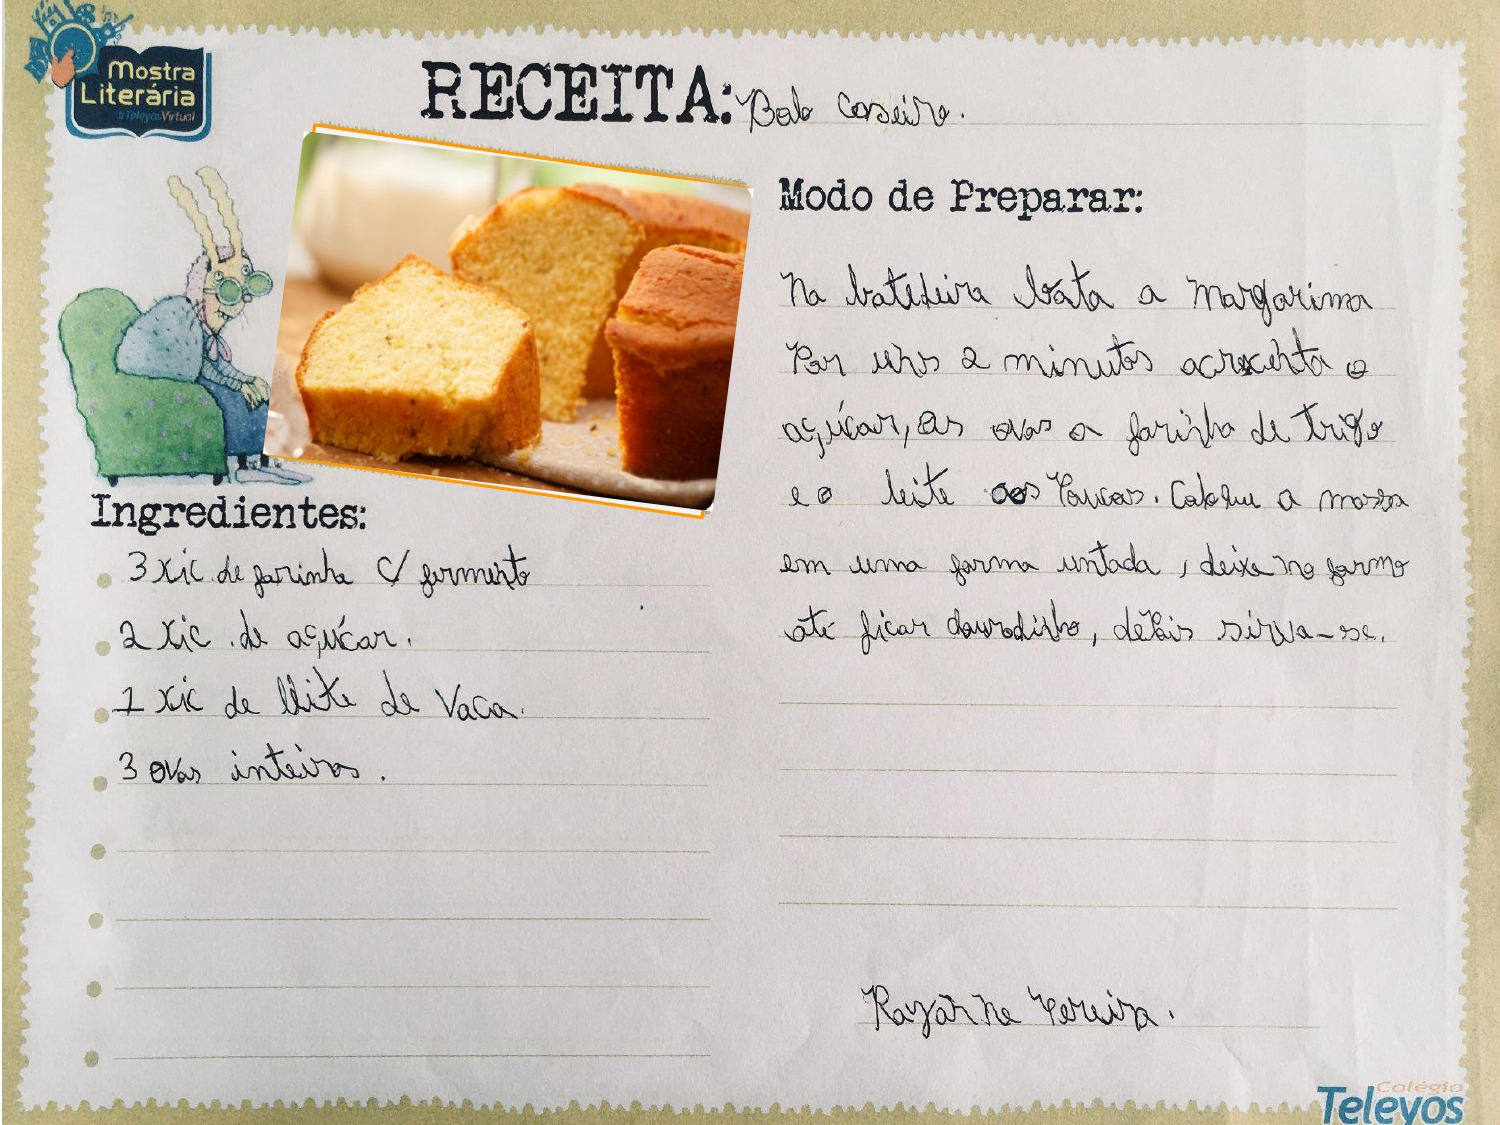 Mostra
Literária
#TeleyosVirtual
RECEITA: Bolo Caseiro.
Ingredientes:
3 xic de farinha c/ fermento
2 xic. de açúcar.
1 xic de leite de Vaca.
3 ovos inteiros.
Modo de Preparar:
Na batedeira bata a margarina
Por uns 2 minutos acrecenta o
açúcar, os ovos a farinha de trigo
e o leite aos Poucos. Coloque a massa
em uma forma untada, deixe no forno
até ficar douradinho, depois sirva-se.
Rayanne Pereira.
Colégio
Teleyos